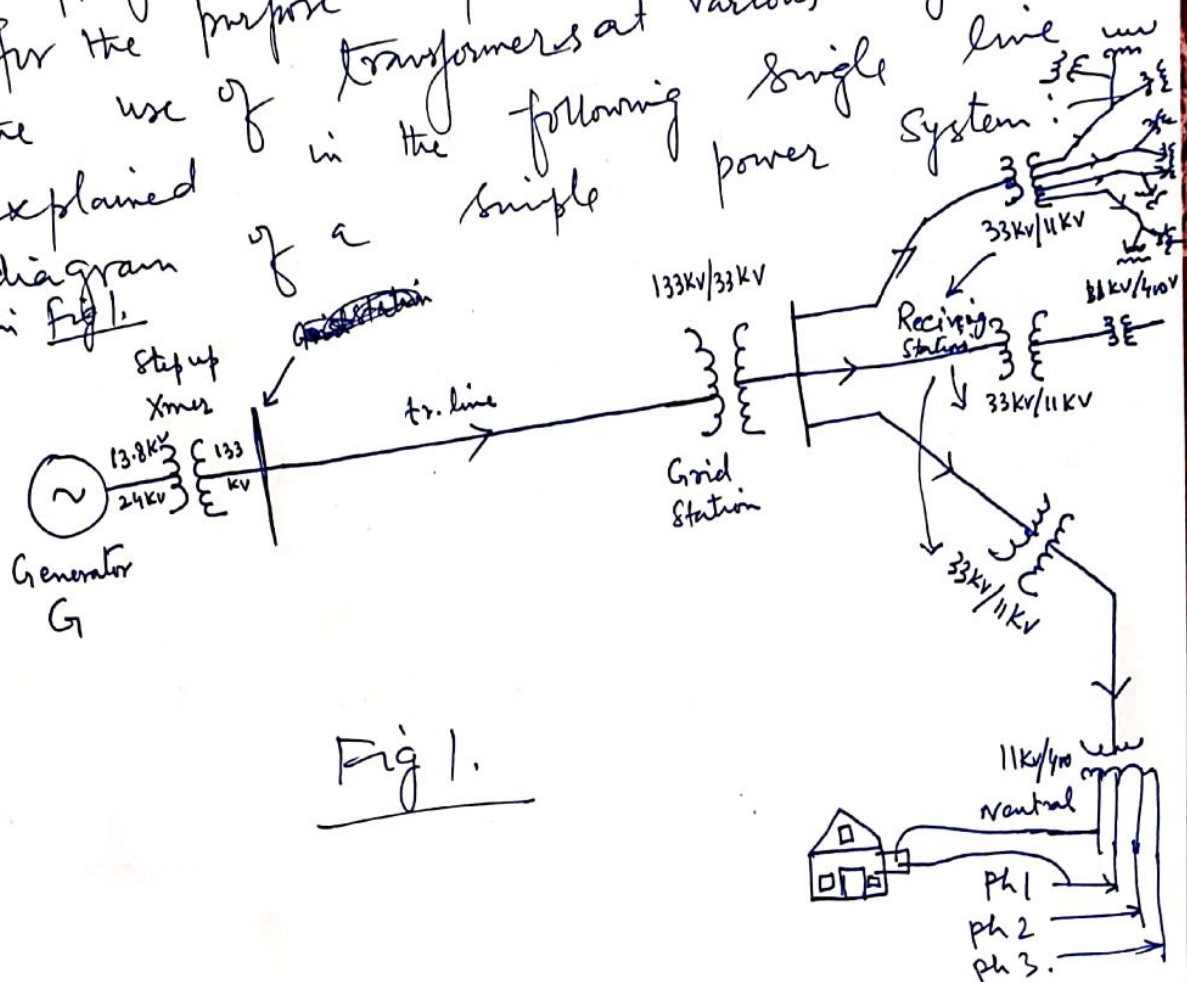 for the purpose
use of transformers at various
explained in the following single line
diagram of a simple power system:
in Fig 1.
Step up
Xmer
13.8KV
24KV
133
KV
Generator
G
tr. line
133KV/33KV
Grid
Station
33KV/11KV
Reciving
Station
33KV/11KV
33KV/11KV
11KV/400
Neutral
Ph 1
ph 2
ph 3.
Fig 1.